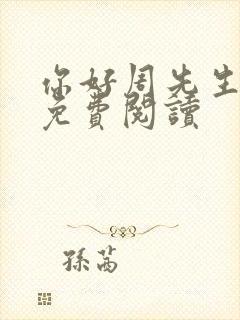 你好周先生
免費閱讀
孫芮